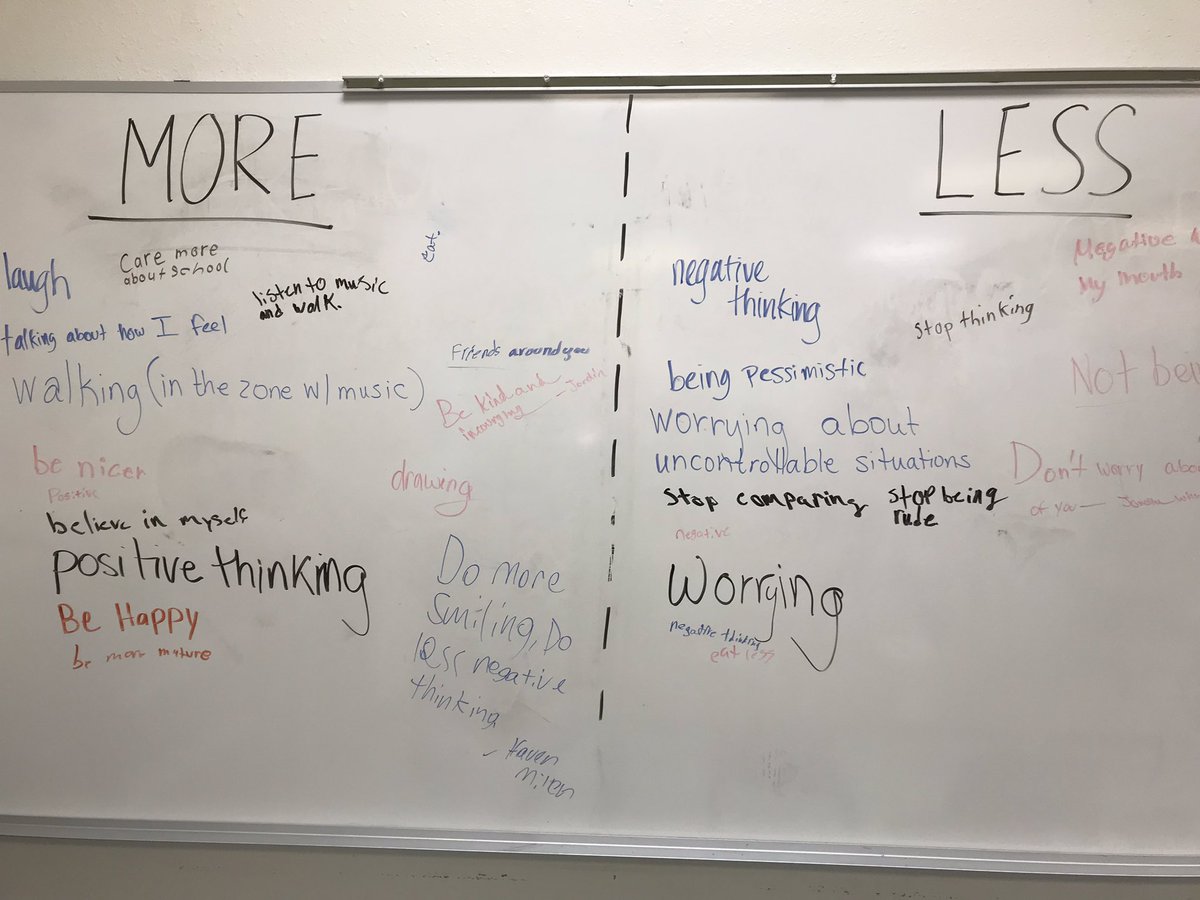 MORE
laugh
Care more
about school
Eat.
listen to music
and walk.
talking about how I feel
Friends around you
walking (in the zone w/ music)
Be kind and
incouraging — Jordin
be nicer
Positive
drawing
believe in myself
positive thinking
Be Happy
be more mature
Do more
Smiling, Do
less negative
thinking
LESS
negative
thinking
Negative
My mouth
stop thinking
being pessimistic
Not bein
worrying about
uncontrollable situations
Don't worry abo
of you —
stop comparing
stop being
rude
negative
Worrying
negative thinking
eat less